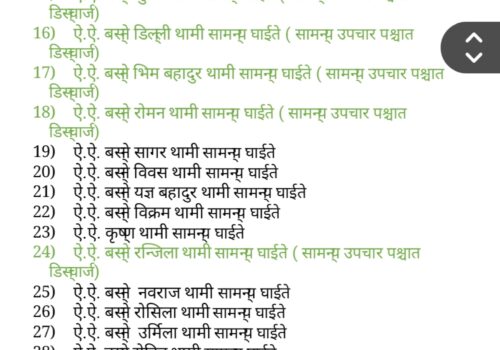 डिस्चार्ज)
16) ऐ.ऐ. बस्ने डिल्ली थामी सामन्य घाईते ( सामन्य उपचार पश्चात
डिस्चार्ज)
17) ऐ.ऐ. बस्ने भिम बहादुर थामी सामन्य घाईते ( सामन्य उपचार पश्चात
डिस्चार्ज)
18) ऐ.ऐ. बस्ने रोमन थामी सामन्य घाईते ( सामन्य उपचार पश्चात
डिस्चार्ज)
19) ऐ.ऐ. बस्ने सागर थामी सामन्य घाईते
20) ऐ.ऐ. बस्ने विवस थामी सामन्य घाईते
21) ऐ.ऐ. बस्ने यज्ञ बहादुर थामी सामन्य घाईते
22) ऐ.ऐ. बस्ने विक्रम थामी सामन्य घाईते
23) ऐ.ऐ. कृष्ण थामी सामन्य घाईते
24) ऐ.ऐ. बस्ने रन्जिला थामी सामन्य घाईते ( सामन्य उपचार पश्चात
डिस्चार्ज)
25) ऐ.ऐ. बस्ने नवराज थामी सामन्य घाईते
26) ऐ.ऐ. बस्ने रोसिला थामी सामन्य घाईते
27) ऐ.ऐ. बस्ने उर्मिला थामी सामन्य घाईते